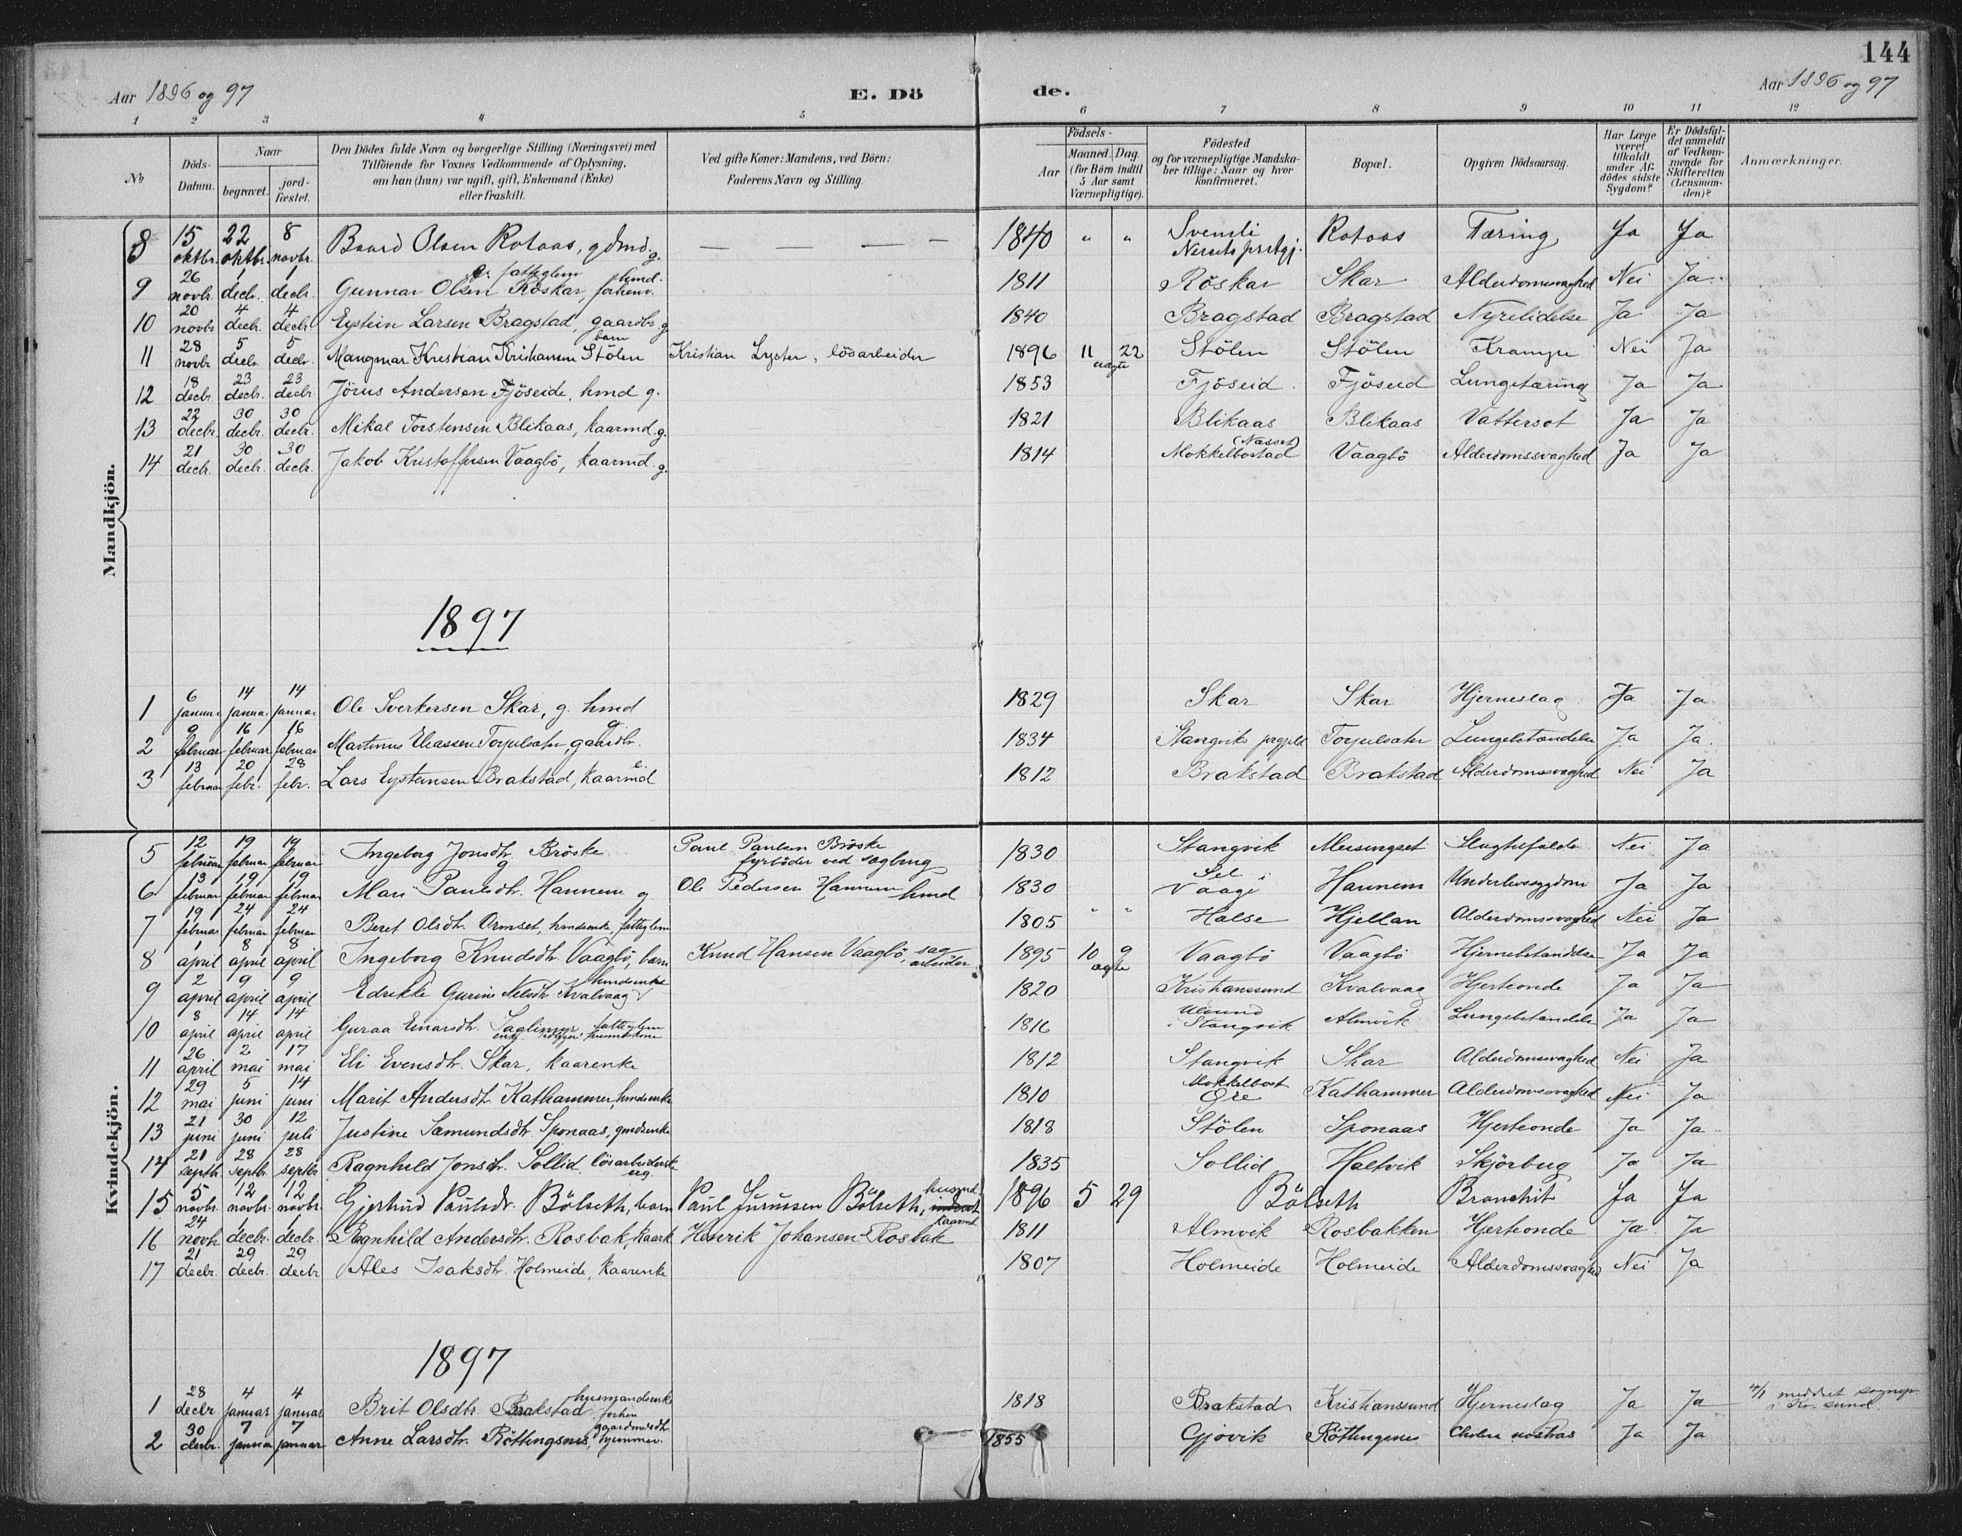 144
Aar 1896 og 97 E. Dö de. Aar 1896 og 97
1 2 3 4 5 6 7 8 9 10 11 12
No Döds-Datum. Naar begravet. jordfæstet. Den Dödes fulde Navn og borgerlige Stilling (Næringsvei) med Tilföiende for Voxnes Vedkommende af Oplysning, om han (hun) var ugift, gift, Enkemand (Enke) eller fraskilt. Ved gifte Koner: Mandens, ved Börn: Faderens Navn og Stilling. Födsels- Aar Maaned. Dag. (for Börn indtil 5 Aar samt Værnepligtige). Födested og for værnepligtige Mandskaber tillige: Naar og hvor konfirmeret. Bopæl. Opgiven Dödsaarsag. Har Læge været tilkaldt under Afdödes sidste Sygdom? Er Dödsfaldet anmeldt af Vedkommende for Skifteretten (Lensmanden)? Anmærkninger.
Mandkjön.
8 15 oktbr. 22 oktbr. 8 novbr. Baard Olsen Rotaas, gdmd g. — — — — 1840 " " Svensli Nersets prstgj. Rotaas Tæring Ja Ja
9 26 novbr. 1 decbr. 1 decbr. Gunnar Olsen Röskar, forhenv. hmd. e. fatteglem 1811 Röskar Skar Alderdomssvaghed Nei Ja
10 20 novbr 4 decbr 4 decbr Eystein Larsen Bragstad, gaardbr. g 1840 Bragstad Bragstad Nyrelidelse Ja Ja
11 28 novbr 5 decbr. 5 decbr. Mangmar Kristian Kristiansen Stölen barn Kristian Lyster, lösarbeider 1896 11 22 uægte Stölen Stölen Krampe Nei Ja
12 18 decbr 23 decbr. 23 decbr Jörus Andersen Fjöseide, hmd g. 1853 Fjöseid Fjöseid Lungetæring Ja Ja
13 22 decbr. 30 decbr. 30 decbr. Mikal Torstensen Blikaas, kaarmd. g. 1821 Blikaas Blikaas Vattersot Ja Ja
14 21 decbr. 30 decbr. 30 decbr. Jakob Kristoffersen Vaagbö, kaarmd g. 1814 Mokkelbostad (Nasset) Vaagbö Alderdomssvaghed Ja Ja
1897
1 6 januar 14 januar 14 januar Ole Sverkersen Skar, g. hmd 1829 Skar Skar Hjerneslag Ja Ja
2 9 februar 16 februar 16 februar Martinus Eliassen Torjulsater, gaardbr. g. 1834 Stangviks prgjeld Torjulsater Lungebetændelse Ja Ja.
3 13 februar 20 febr. 28 febr. Lars Eysteinsen Brakstad, kaarmd e. 1812 Brakstad Brakstad Alderdomssvaghed Nei Ja
Kvindekjön.
5 12 februar 19 februar 19 februar Ingeborg Jonsdtr. Bröske g Paul Paulsen Bröske fyrböder ved sagbrug 1830 Stangvik Meisingset Slagtilfælde Nei Ja
6 13 februar 19 februar 19 februar Mari Paulsdtr. Hannem g Ole Pedersen Hannem hmd 1830 Vaage Hannem Underlivssygdom Ja Ja
7 19 februar 24 februar 24 februar Beret Olsdtr. Ormset, hmdsenke, fatteglem 1805 " " Halse Hjellan Alderdomssvaghed Nei Ja
8 1 april 8 april 8 april Ingeborg Knudsdtr. Vaagbö, barn Knud Hansen Vaagbö, sagarbeider 1895 10 9 ægte Vaagbö Vaagbö Hjernebetændelse Ja Ja
9 2 april 9 april 9 april Edrikke Gurine Nelsdtr Kvalvaag hmdsenke 1820 Kristianssund Kvalvaag Hjerteonde Ja Ja
10 8 april 14 april 14 april Guraa Einarsdtr. fatteglem 1816 Ulvund i Stangvik Almvik Lungebetændelse Ja Ja
11 26 april 2 mai 17 mai Eli Evensdtr. Skar, kaarenke 1812 Stangvik Skar Alderdomssvaghed Nei Ja
12 29 mai 5 juni 14 juni Marit Andersdtr. Kathammer, hmdsenke 1810 Mokkelbost Öre Kathammer Alderdomssvaghed Nei Ja
13 21 juni 30 juni 12 juli Justine Samundsdtr. Sponaas, gmdsenke 1818 Stölen Sponaas Hjerteonde Ja Ja
14 21 septbr. 28 septbr. 28 septbr Ragnhild Jonsdtr. Sollid, lösarbeiderske ug. 1835 Sollid Haltvik Skjörbug Ja Ja
15 5 novbr. 12 novbr. 12 novbr. Gjertrud Paulsdr. Bölseth, barn Paul Jurussen Bölseth, husmd. 1896 5 29 Bölseth Bronchit Ja Ja
16 24 novbr. 1 decbr. 1 decbr. Ragnhild Andersdtr. Rosbak, kaark Henrik Johansen Rosbak kaarmd 1811 Almvik Rosbakken Hjerteonde Ja Ja
17 21 decbr. 29 decbr. 29 decbr Ales Isaksdtr. Holmeide, kaarenke 1807 Holmeide Holmeide Alderdomssvaghed Nei Ja
1897
1 28 decbr 4 januar 4 januar Brit Olsdtr. Brakstad husmandsenke 1818 Brakstad Kristianssund Hjerneslag Ja Ja 4/1 meddelt sognepr. i Kr. sund.
2 30 decbr. 7 januar 7 januar Anne Larsdtr. Röttingsnes, forhen gaardmersdtr hjemmev. 1855 Gjövik Röttingsnes Cholera nostras Ja Ja